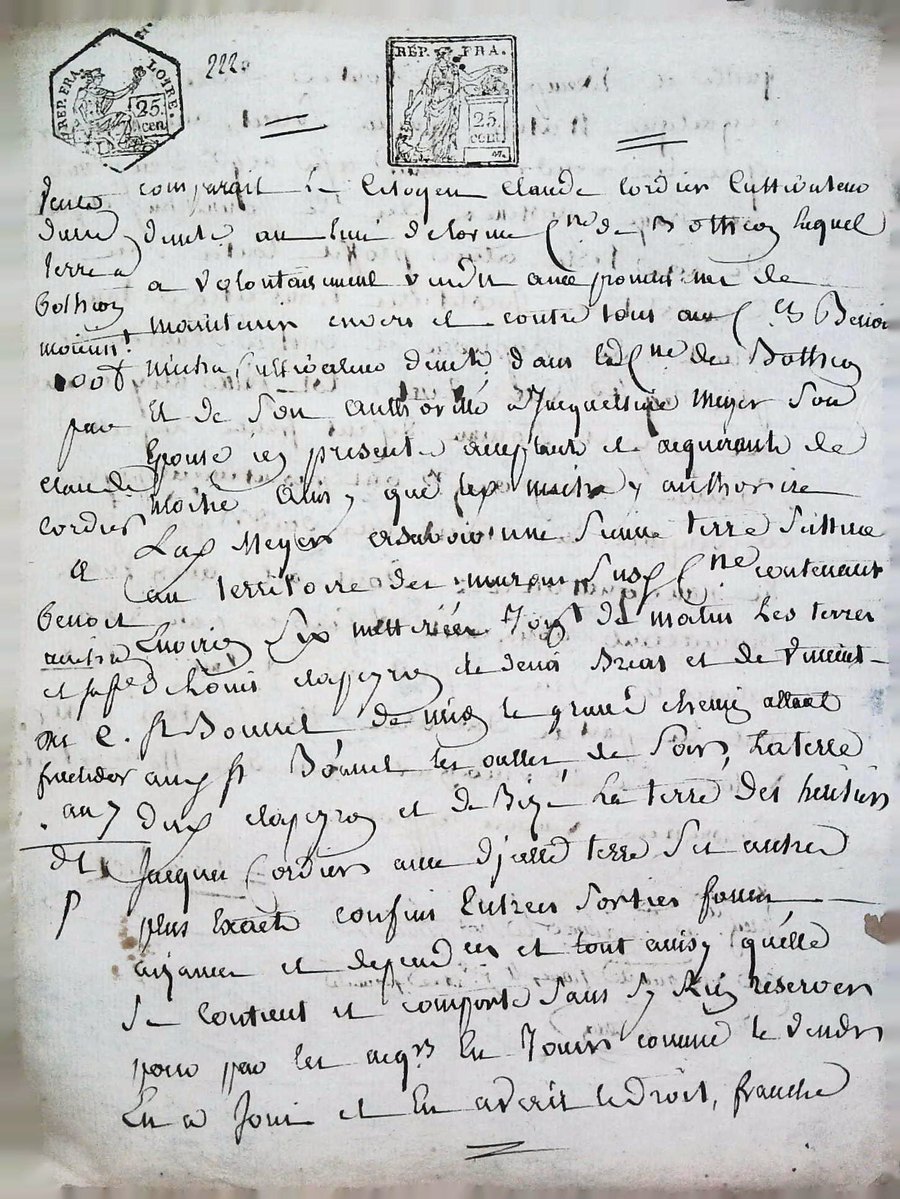 REP. FRA. LOIRE.
25. cen.
222
REP. FRA.
25. cent
Vente
d'une
terre a
Bothéon
moienn.t
100 f
par
claude
cordier
a
Benoit
an 7
dt
comparait le Citoyen claude Cordier Cultivateur
dem.t au lieu delorme C.ne de Bothéon lequel
a volontairement vendu avec promesse de
maintenir envers et contre tous aux C.ns Benoit
Cultivateur dem.t dans lad C.ne de Bothéon
Et de son authorité a Jacqueline Meyer son
Epouse icy presente acceptante et acquérante de
moitié ainsy que led y authorise
Lad Meyer une sienne terre scittuee
au territoire des susd C.ne contenant
Environ six de matin les terres
de Louis clapeyron de denis et de Vincent
Bonnet de midy le grand chemin allant
aud st Bonnet les oulles de soir, la terre
dud clapeyron et de Bize La terre des heritiers
Jacques Cordier avec d'jcelle terre ses autres
plus Exacts confins Entrees sorties fonds
aizances et dependces et tout ainsy qu'elle
se contient et comporte sans s'y Rien reserver
pour par les acqrs En Jouir comme le vendr
En a Joui et En avait le droit, franche